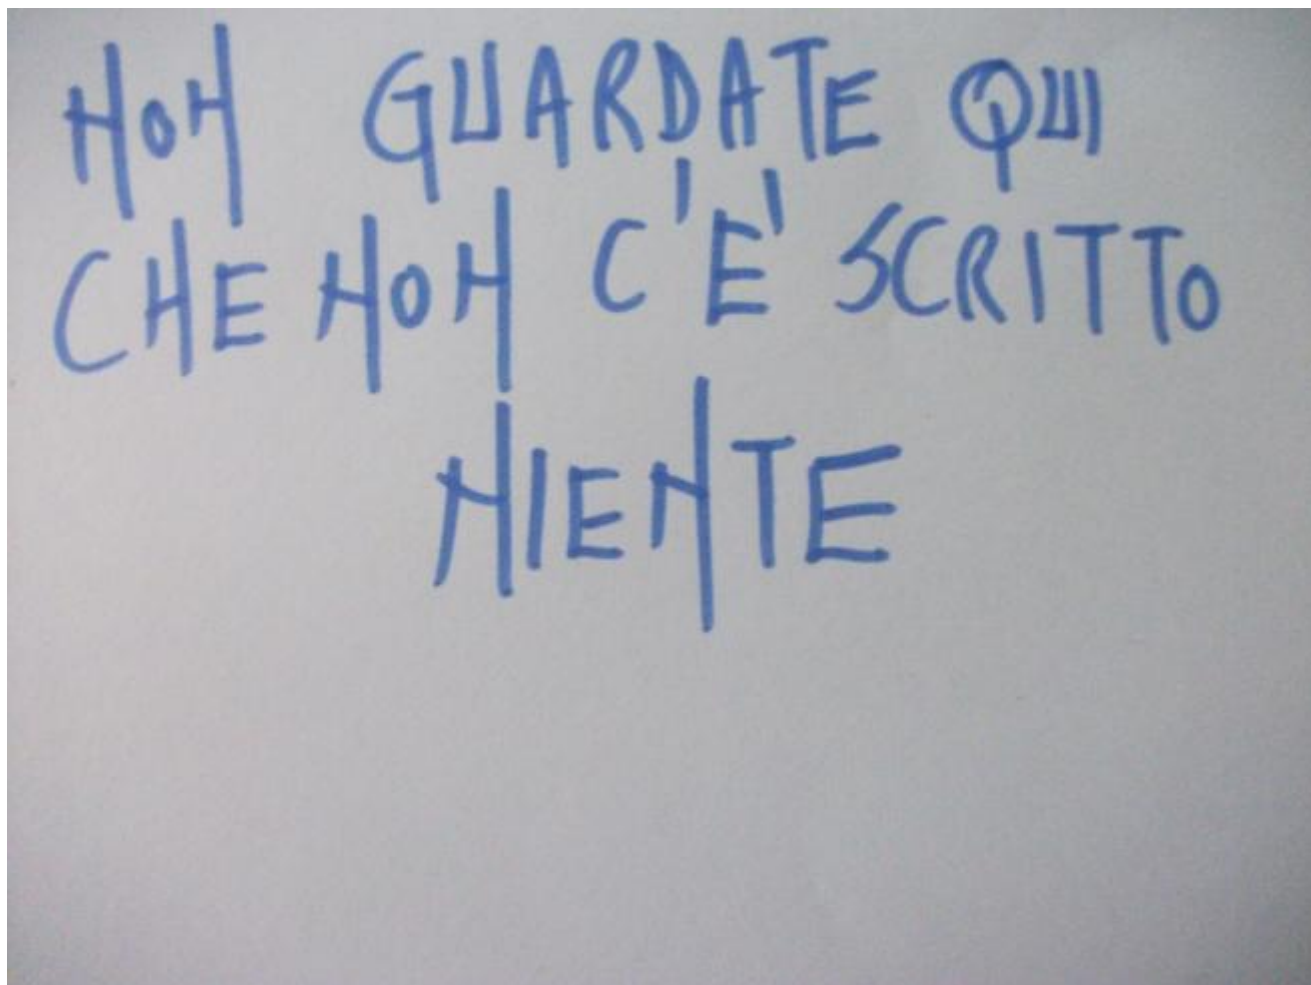 NON GUARDATE QUI
CHE NON C'E' SCRITTO
NIENTE